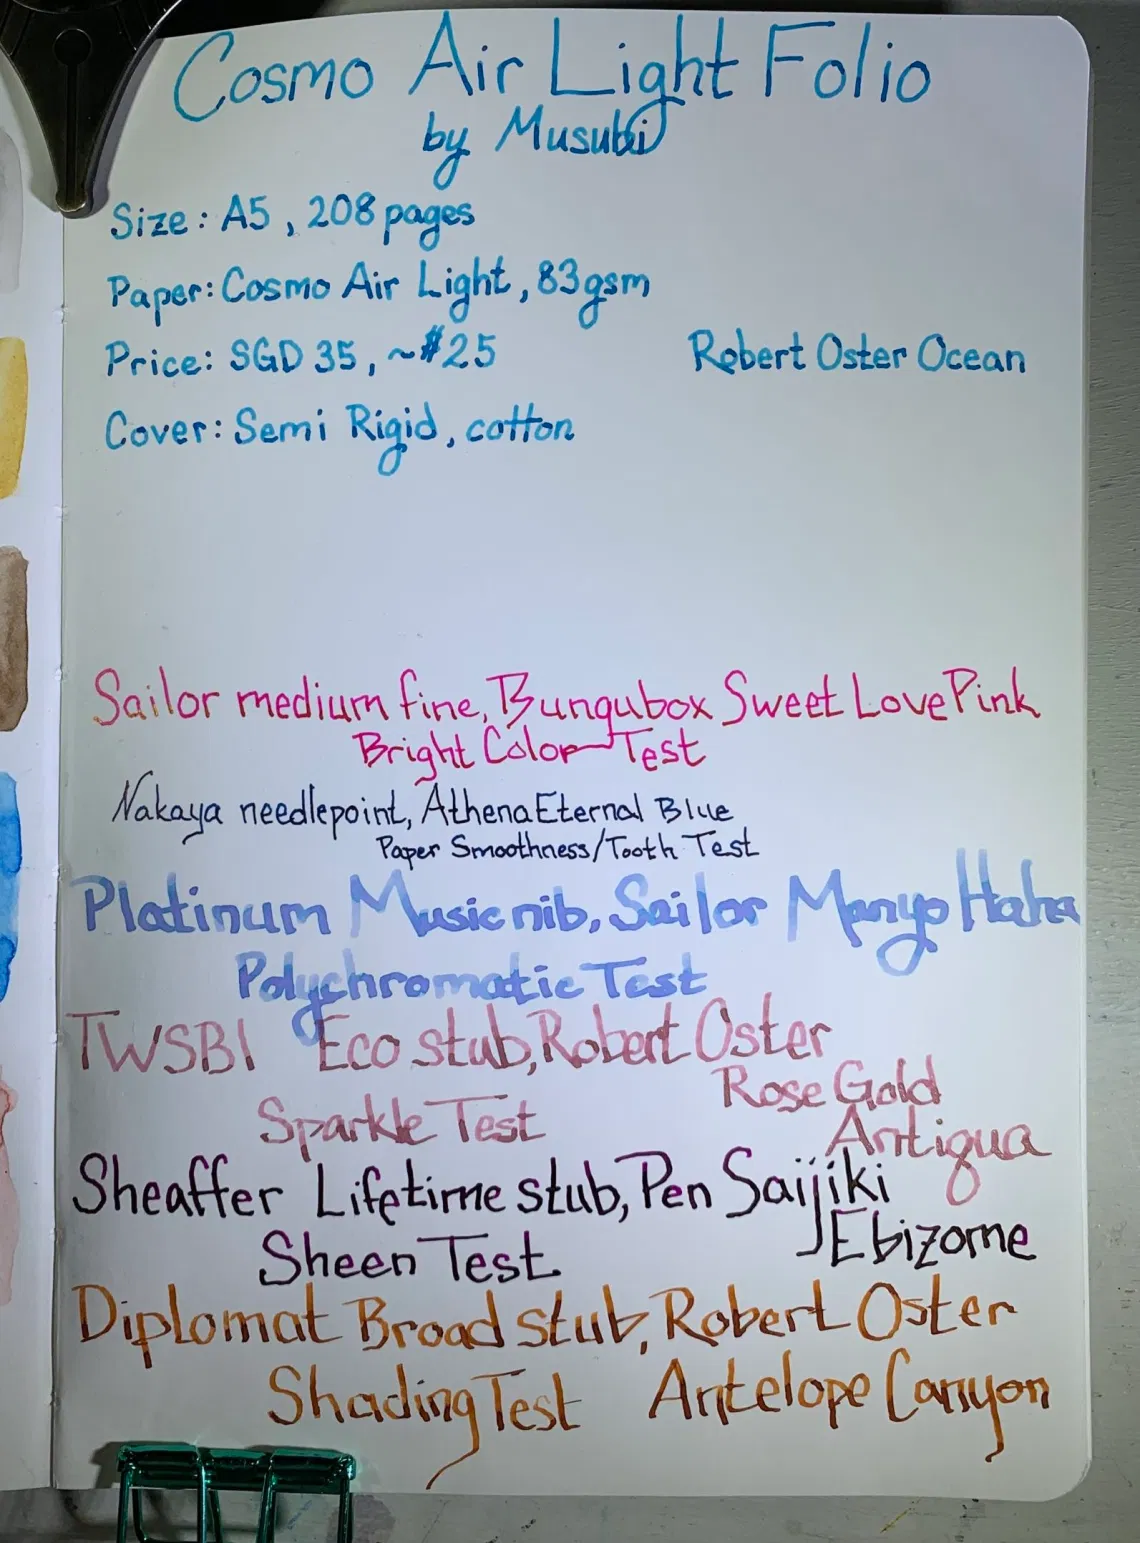 Cosmo Air Light Folio
by Musubi
Size: A5, 208 pages
Paper: Cosmo Air Light, 83gsm
Price: SGD 35, ~$25
Robert Oster Ocean
Cover: Semi Rigid, cotton
Sailor medium fine, Bungubox Sweet Love Pink
Bright Color Test
Nakaya needlepoint, Athena Eternal Blue
Paper Smoothness/Tooth Test
Platinum Music nib, Sailor Manyo Haha
Polychromatic Test
TWSBI Eco stub, Robert Oster
Rose Gold
Sparkle Test
Antiqua
Sheaffer Lifetime stub, Pen Saijiki
Ebizome
Sheen Test
Diplomat Broad stub, Robert Oster
Shading Test Antelope Canyon